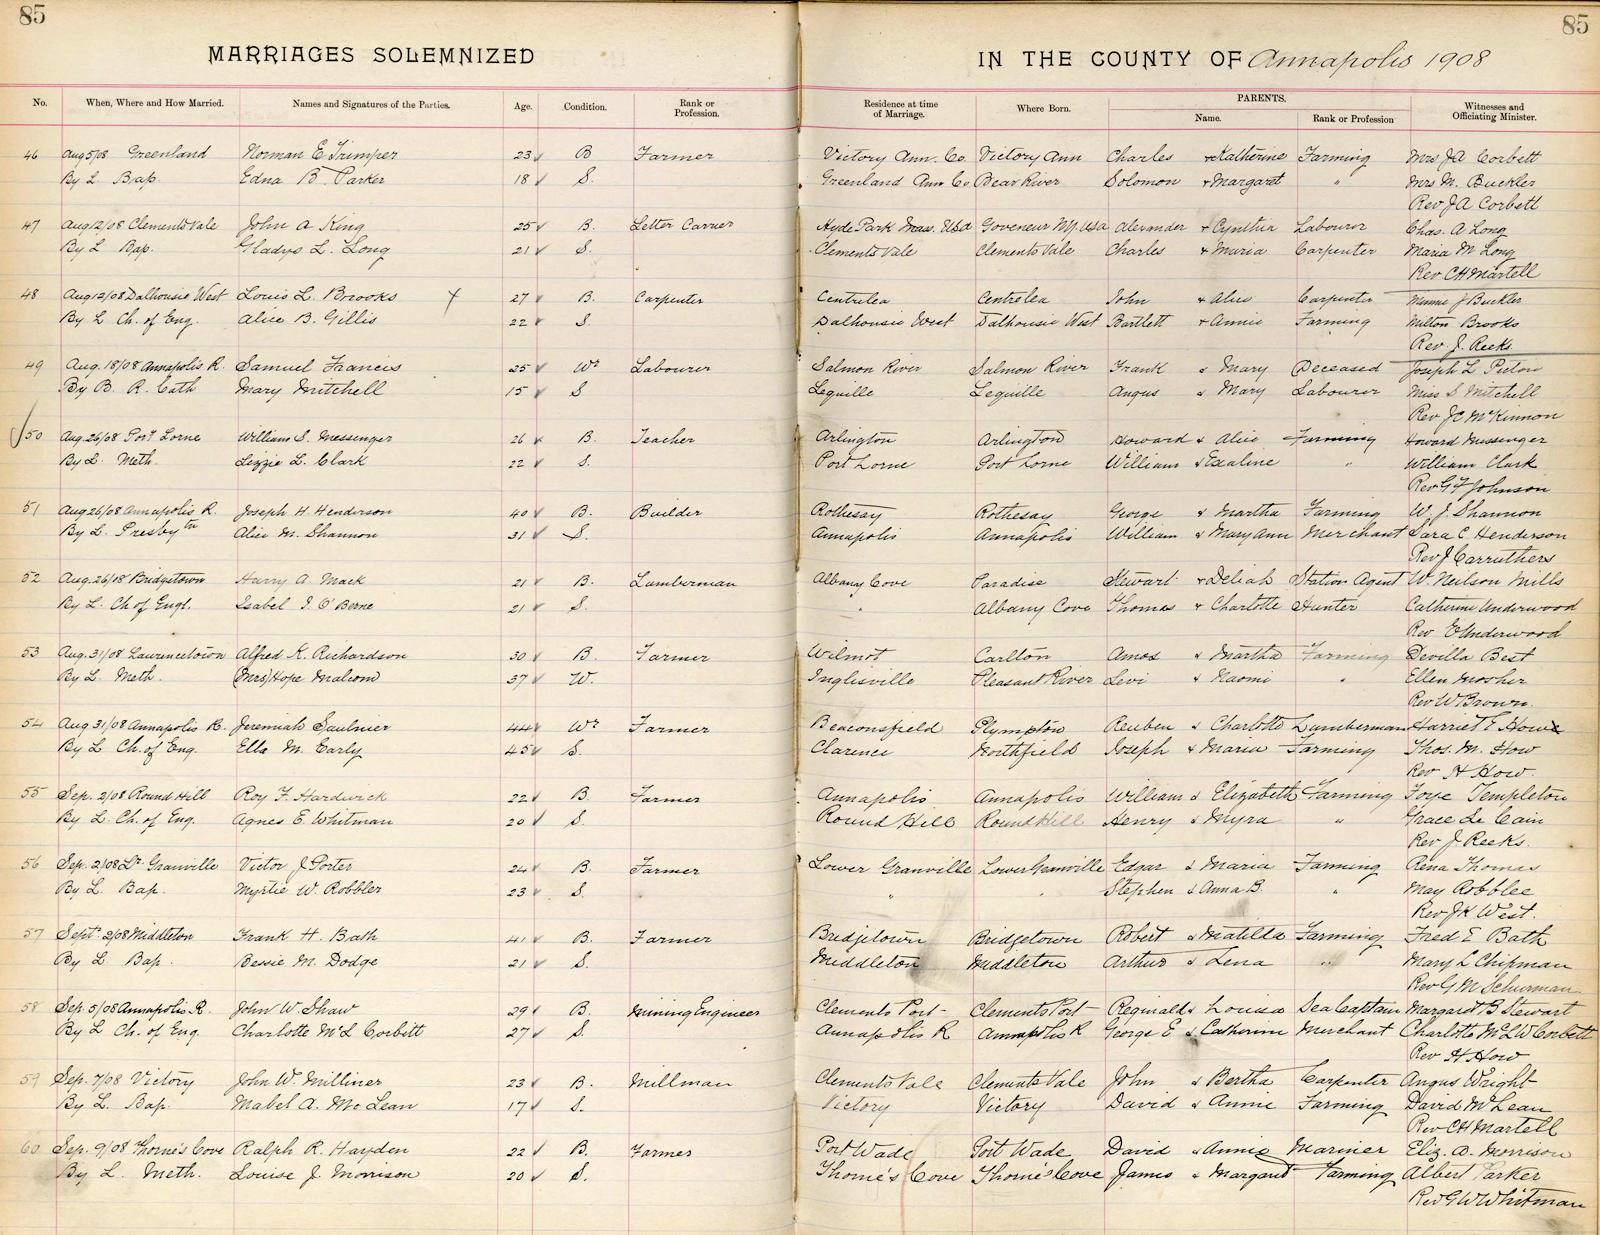 85
85
MARRIAGES SOLEMNIZED
IN THE COUNTY OF Annapolis 1908
No. When, Where and How Married. Names and Signatures of the Parties. Age. Condition. Rank or Profession. Residence at time of Marriage. Where Born. PARENTS. Name. Rank or Profession Witnesses and Officiating Minister.
46 Aug 5/08 Greenland Norman E. Trimper 23 B Farmer Victory Ann. Co. Victory Ann Charles & Katherine Farming Mrs JA Corbett
By L. Bap. Edna B. Parker 18 S. Greenland Ann Co Bear River Solomon & Margaret " Mrs M. Buckler
Rev JA Corbett
47 Aug 12/08 Clements Vale John A King 25 B. Letter Carrier Hyde Park Mass. USA Goveneur NY. USA Alexander & Cynthia Labourer Chas. A Long
By L Bap. Gladys L. Long 21 S. Clements Vale Clements Vale Charles & Maria Carpenter Maria M Long
Rev. CH Martell
48 Aug 12/08 Dalhousie West Louis L. Brooks 27 B. Carpenter Centrelea Centrelea John & Alice Carpenter Minnie J Buckler
By L Ch. of Eng. Alice B. Gillis 22 S. Dalhousie West Dalhousie West Bartlett & Annie Farming Milton Brooks
Rev. J. Reeks
49 Aug. 18/08 Annapolis R. Samuel Francis 25 Wr Labourer Salmon River Salmon River Frank & Mary Deceased Joseph L Picton
By B. R. Cath Mary Mitchell 15 S Lequille Lequille Angus & Mary Labourer Miss S Mitchell
Rev JC McKinnon
50 Aug. 26/08 Port Lorne William S. Messenger 26 B. Teacher Arlington Arlington Howard & Alice Farming Howard Messenger
By L. Meth. Lizzie L. Clark 22 S. Port Lorne Port Lorne William & Exaline " William Clark
Rev G F Johnson
51 Aug 26/08 Annapolis R. Joseph H. Henderson 40 B. Builder Rothesay Rothesay George & Martha Farming W. J. Shannon
By L. Presbytn Alice M. Shannon 31 S. Annapolis Annapolis William & Mary Ann Merchant Sara C Henderson
Rev J Carruthers
52 Aug. 26/08 Bridgetown Harry A. Mack 21 B. Lumberman Albany Cove Paradise Stewart & Deliah Station Agent W. Neilson Mills
By L. Ch of Engl. Isabel I. O'Berne 21 S. " Albany Cove Thomas & Charlotte Hunter Catherine Underwood
Rev E Underwood
53 Aug. 31/08 Lawrencetown Alfred K. Richardson 30 B. Farmer Wilmot Carlton Amos & Martha Farming Devilla Best
By L. Meth. (Mrs) Hope Malcom 37 W. Inglisville Pleasant River Levi & Naomi " Ellen Mosher
Rev W Brown.
54 Aug 31/08 Annapolis R. Jeremiah Saulnier 44 Wr Farmer Beaconsfield Plympton Reuben & Charlotte Lumberman Harriet E How
By L Ch. of Eng. Ella M. Early 45 S. Clarence Northfield Joseph & Maria Farming Thos. M. How
Rev H How.
55 Sep. 2/08 Round Hill Roy F. Hardwick 22 B. Farmer Annapolis Annapolis William & Elizabeth Farming Foye Templeton
By L. Ch. of Eng. Agnes E. Whitman 20 S. Round Hill Round Hill Henry & Myra " Grace Le Cain
Rev J Reeks.
56 Sep. 2/08 Lr. Granville Victor J Porter 24 B. Farmer Lower Granville Lower Granville Edgar & Maria Farming Rena Thomas
By L. Bap. Myrtie W. Robblee 23 S. " " Stephen & Anna B. " May Robblee
Rev JK West.
57 Sept. 2/08 Middleton Frank H. Bath 41 B. Farmer Bridgetown Bridgetown Robert & Matilda Farming Fred E Bath
By L Bap. Bessie M. Dodge 21 S. Middleton Middleton Arthur & Lena " Mary L Chipman
Rev G M Schurman
58 Sep. 5/08 Annapolis R. John W. Shaw 29 B. Mining Engineer Clements Port Clements Port Reginald & Louisa Sea Captain Margaret B Stewart
By L Ch. of Eng. Charlotte McL Corbitt 27 S. Annapolis R Annapolis R George E & Catherine Merchant Charlotte McL W Corbett
Rev H How
59 Sep. 7/08 Victory John W. Milliner 23 B. Millman Clements Vale Clements Vale John & Bertha Carpenter Angus Wright
By L. Bap. Mabel A. McLean 17 S. Victory Victory David & Annie Farming David McLean
Rev CH Martell
60 Sep. 9/08 Thorne's Cove Ralph R. Hayden 22 B. Farmer Port Wade Port Wade David & Annie Mariner Eliz. A. Morrison
By L. Meth. Louise J. Morrison 20 S. Thorne's Cove Thorne's Cove James & Margaret Farming Albert Parker
Rev G W Whitman